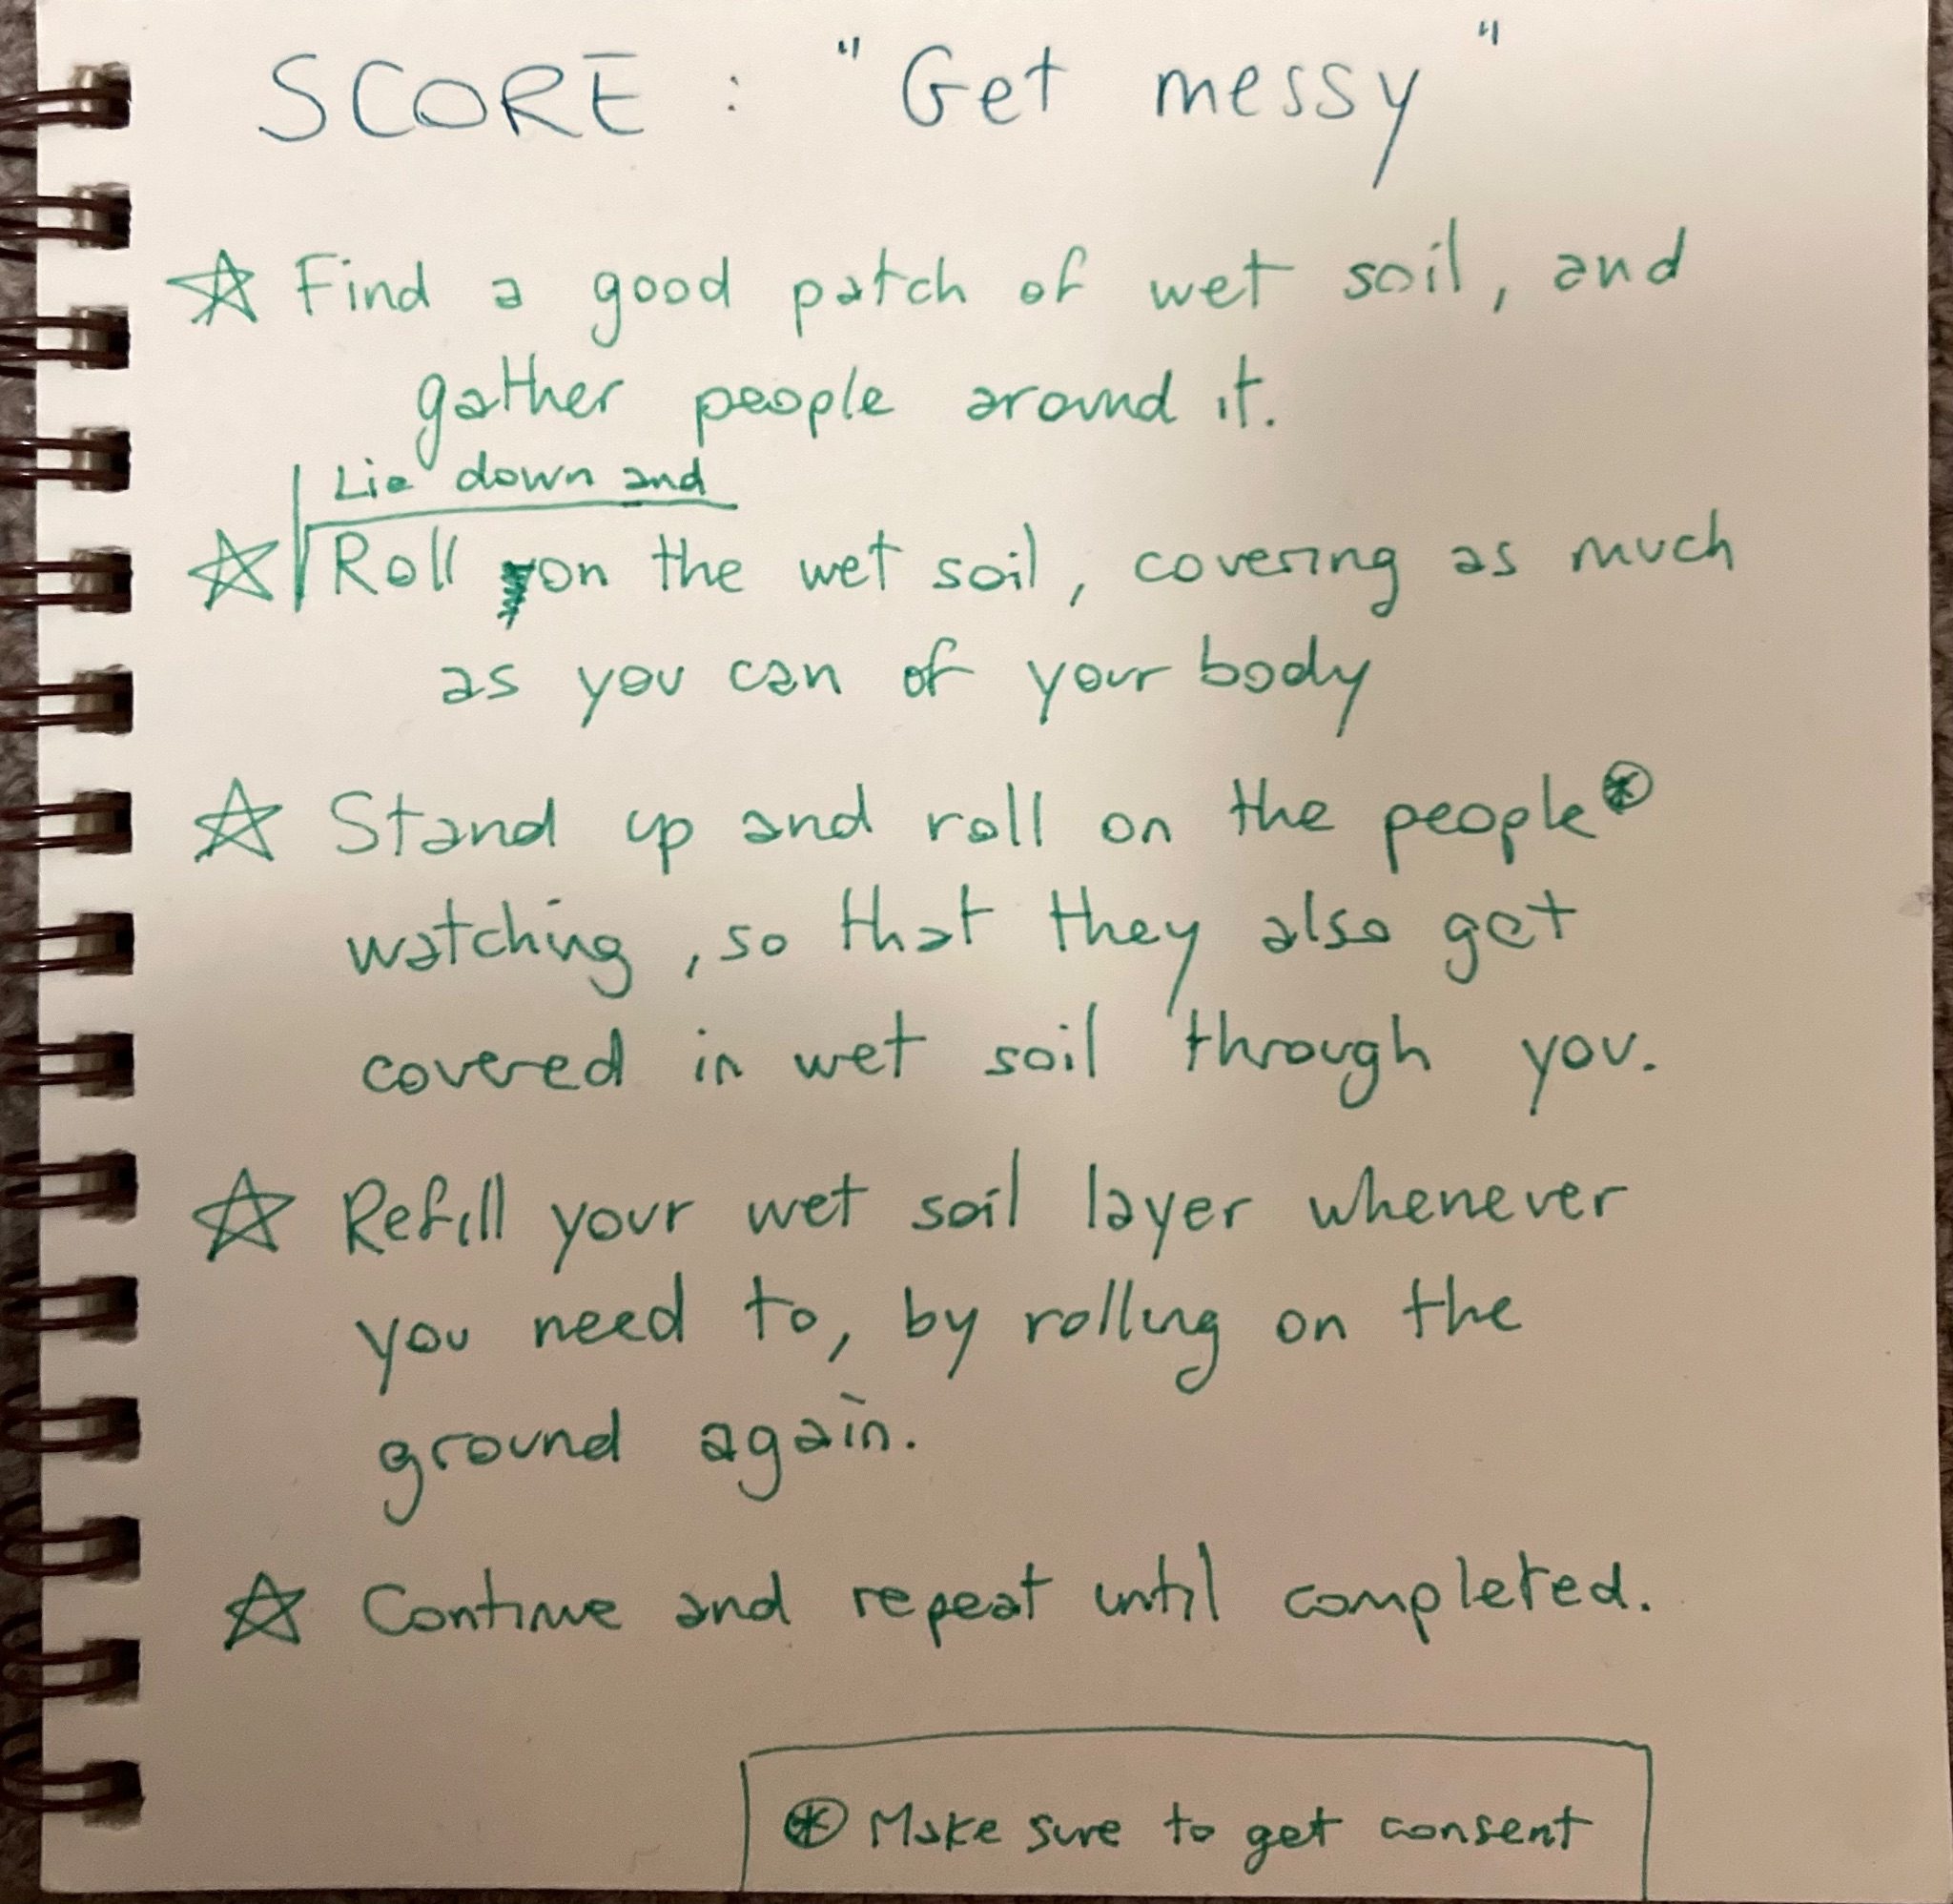 SCORE : "Get messy"
☆ Find a good patch of wet soil, and
gather people around it.
Lie down and
☆ Roll on the wet soil, covering as much
as you can of your body
☆ Stand up and roll on the people⊛
watching, so that they also get
covered in wet soil through you.
☆ Refill your wet soil layer whenever
you need to, by rolling on the
ground again.
☆ Continue and repeat until completed.
⊛ Make sure to get consent